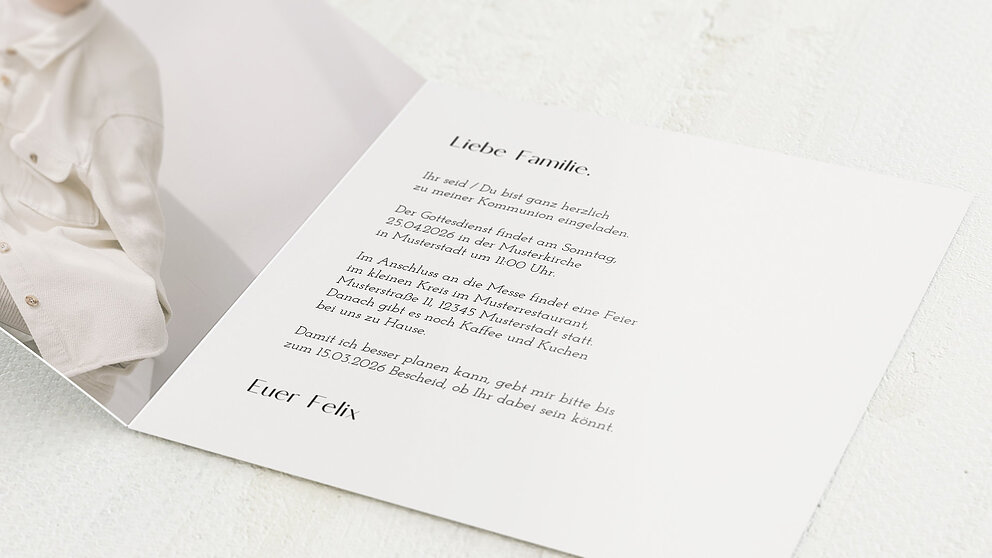 Liebe Familie,
Ihr seid / Du bist ganz herzlich
zu meiner Kommunion eingeladen.
Der Gottesdienst findet am Sonntag,
25.04.2026 in der Musterkirche
in Musterstadt um 11:00 Uhr.
Im Anschluss an die Messe findet eine Feier
im kleinen Kreis im Musterrestaurant,
Musterstraße 11, 12345 Musterstadt statt.
Danach gibt es noch Kaffee und Kuchen
bei uns zu Hause.
Damit ich besser planen kann, gebt mir bitte bis
zum 15.03.2026 Bescheid, ob Ihr dabei sein könnt.
Euer Felix